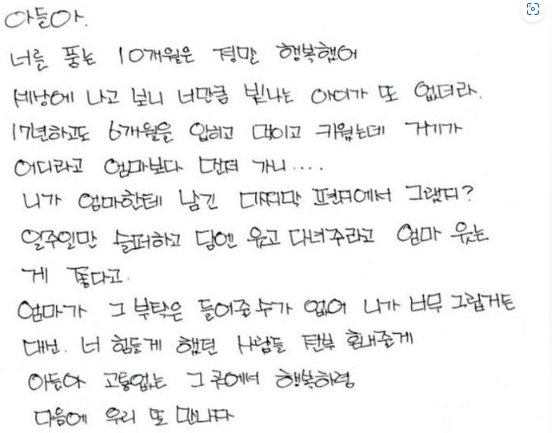 아들아.
너를 품는 10개월은 정말 행복했어
세상에 나고 보니 너만큼 빛나는 아이가 또 없더라.
17년하고도 6개월을 입히고 먹이고 키웠는데 거기가
어디라고 엄마보다 먼저 가니....
니가 엄마한테 남긴 마지막 편지에서 그랬지?
일주일만 슬퍼하고 담엔 웃고 다녀주라고 엄마 웃는
게 좋다고.
엄마가 그 부탁은 들어줄 수가 없어 니가 너무 그립거든
대신. 너 힘들게 했던 사람들 전부 혼내줄게
아들아 고통없는 그 곳에서 행복하렴
다음에 우리 또 만나자